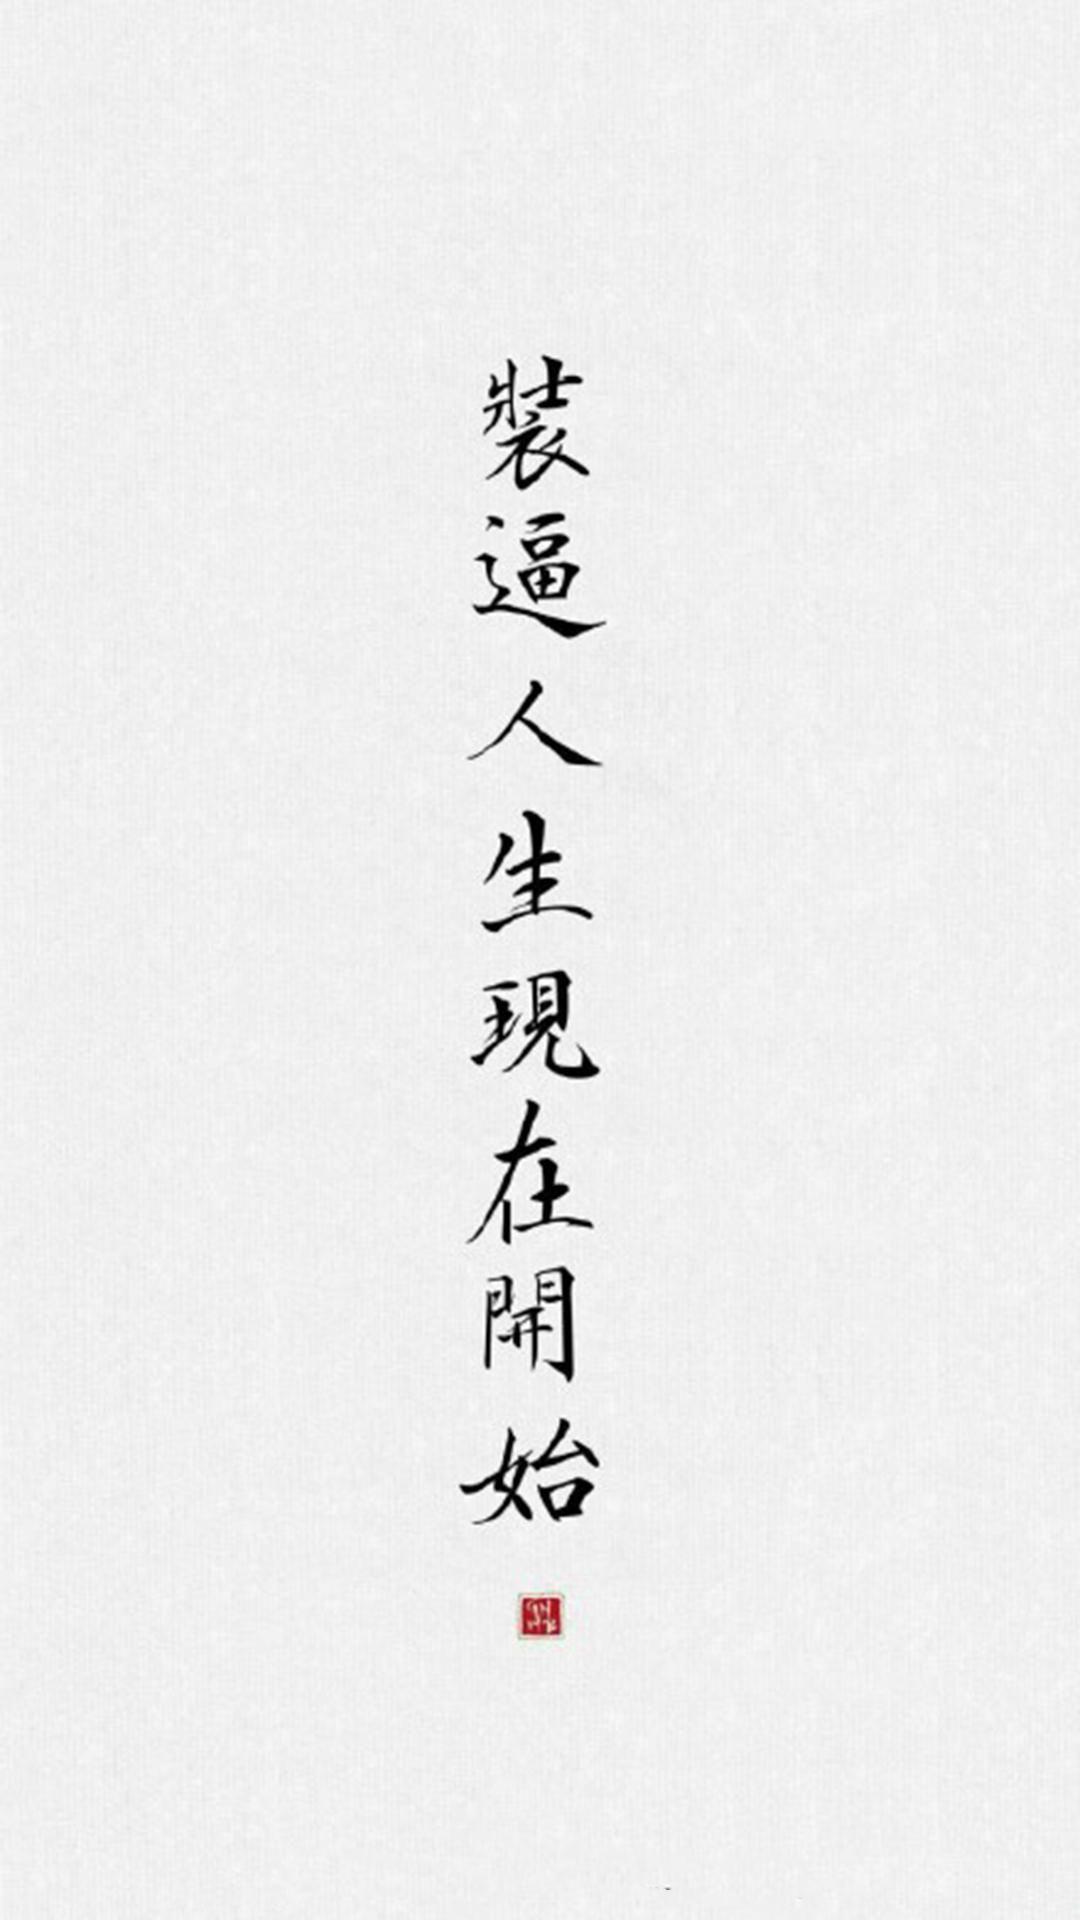 裝逼人生現在開始